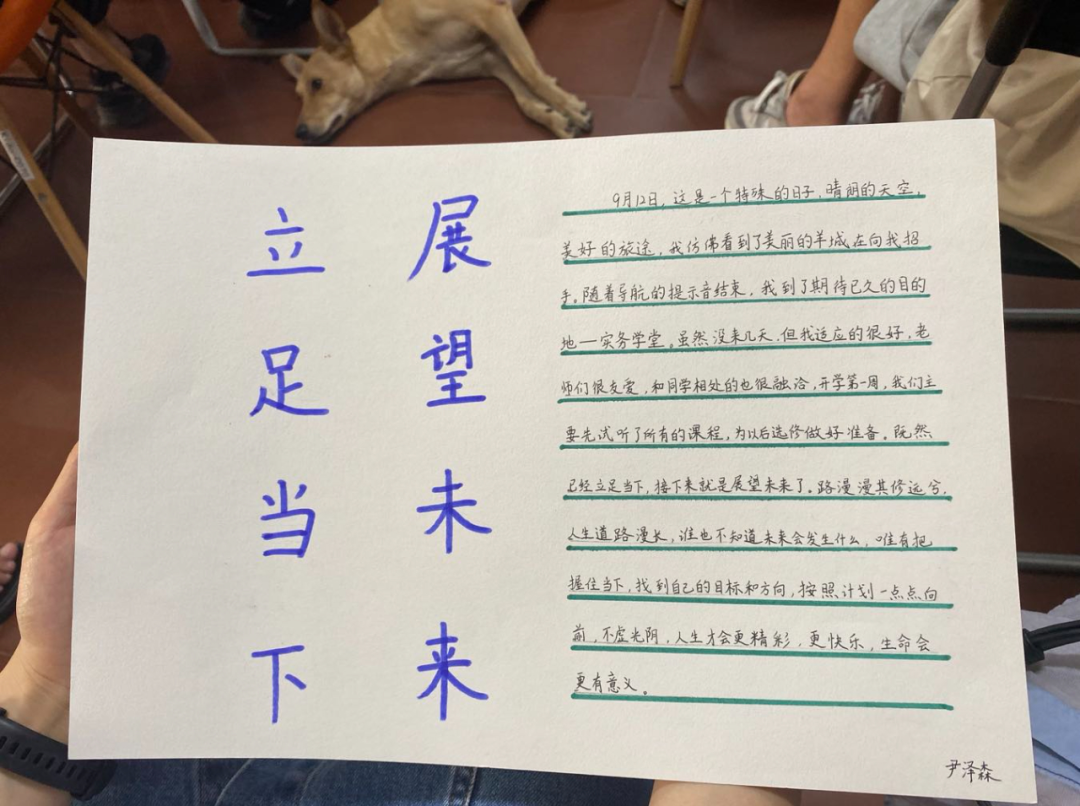 立足当下
展望未来
9月12日，这是一个特殊的日子，晴朗的天空，
美好的旅途，我仿佛看到了美丽的羊城在向我招
手。随着导航的提示音结束，我到了期待已久的目的
地一实务学堂。虽然没来几天，但我适应的很好，老
师们很友爱，和同学相处的也很融洽，开学第一周，我们主
要先试听了所有的课程，为以后选修做好准备。既然
已经立足当下，接下来就是展望未来了。路漫漫其修远兮，
人生道路漫长，谁也不知道未来会发生什么，唯有把
握住当下，找到自己的目标和方向，按照计划一点点向
前，不虚光阴，人生才会更精彩，更快乐，生命会
更有意义。
尹泽森